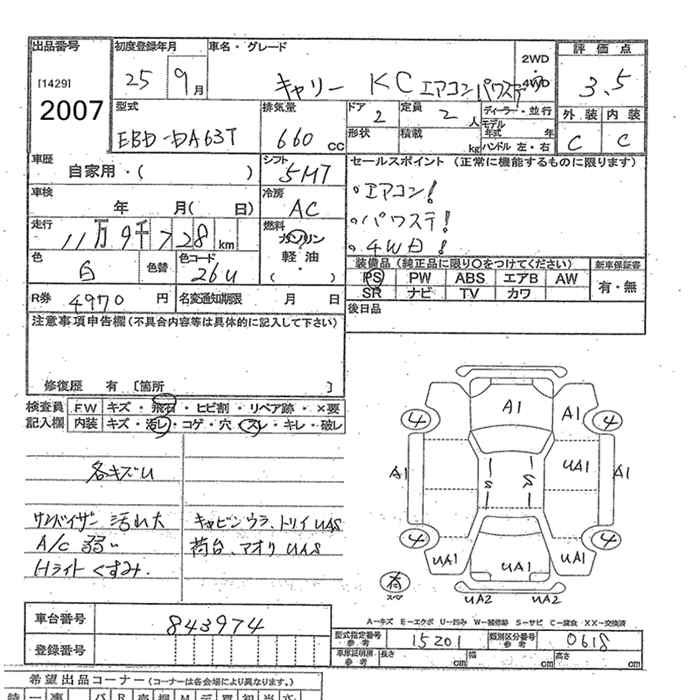 出品番号 初度登録年月 車名・グレード 評価点
[1429] 25 9月 キャリー KC エアコンパワステ 2WD・4WD 3.5
2007 外装 内装
型式 排気量 ドア 定員 ディーラー・並行
EBD-DA63T 660cc 2 2人 モデル年式 年 C C
形状 積載 kg ハンドル 左・右
車歴 自家用・( ) シフト 5MT セールスポイント (正常に機能するものに限ります)
車検 年 月( 日) 冷房 AC ・エアコン!
走行 11万9千728km 燃料 ガソリン 軽油 ・ ( ) ・パワステ!
・4WD!
色 白 色替 色コード 26U 装備品(純正品に限り○をつけてください) 新車保証書
PS PW ABS エアB AW 有・無
SR ナビ TV カワ
R券 4970円 名変通知期限 月 日 後日品
注意事項申告欄(不具合内容等は具体的に記入して下さい)
修復歴 有 [箇所 ]
検査員 FW キズ・飛石・ヒビ割・リペア跡・×要
記入欄 内装 キズ・汚レ・コゲ・穴・スレ・キレ・破レ
各キズU
サンバイザー 汚れ大 キャビンウラ、トリイUAS
A/C 弱い 荷台、アオリUAS
Hライトくすみ.
A1 A1
4 4
A1 S S UA1 A1
4 4
UA1 UA1 UA1
有 スペア UA2 UA2
A-キズ E-エクボ U-凹み W-補修跡 S-サビ C-腐食 XX-交換済
車台番号 843974 型式指定番号 参考 15201 類別区分番号 参考 0618
登録番号 車庫証明用 参考 長さ cm 幅 cm 高さ cm
希望出品コーナー (コーナーは各会場により異なります。)